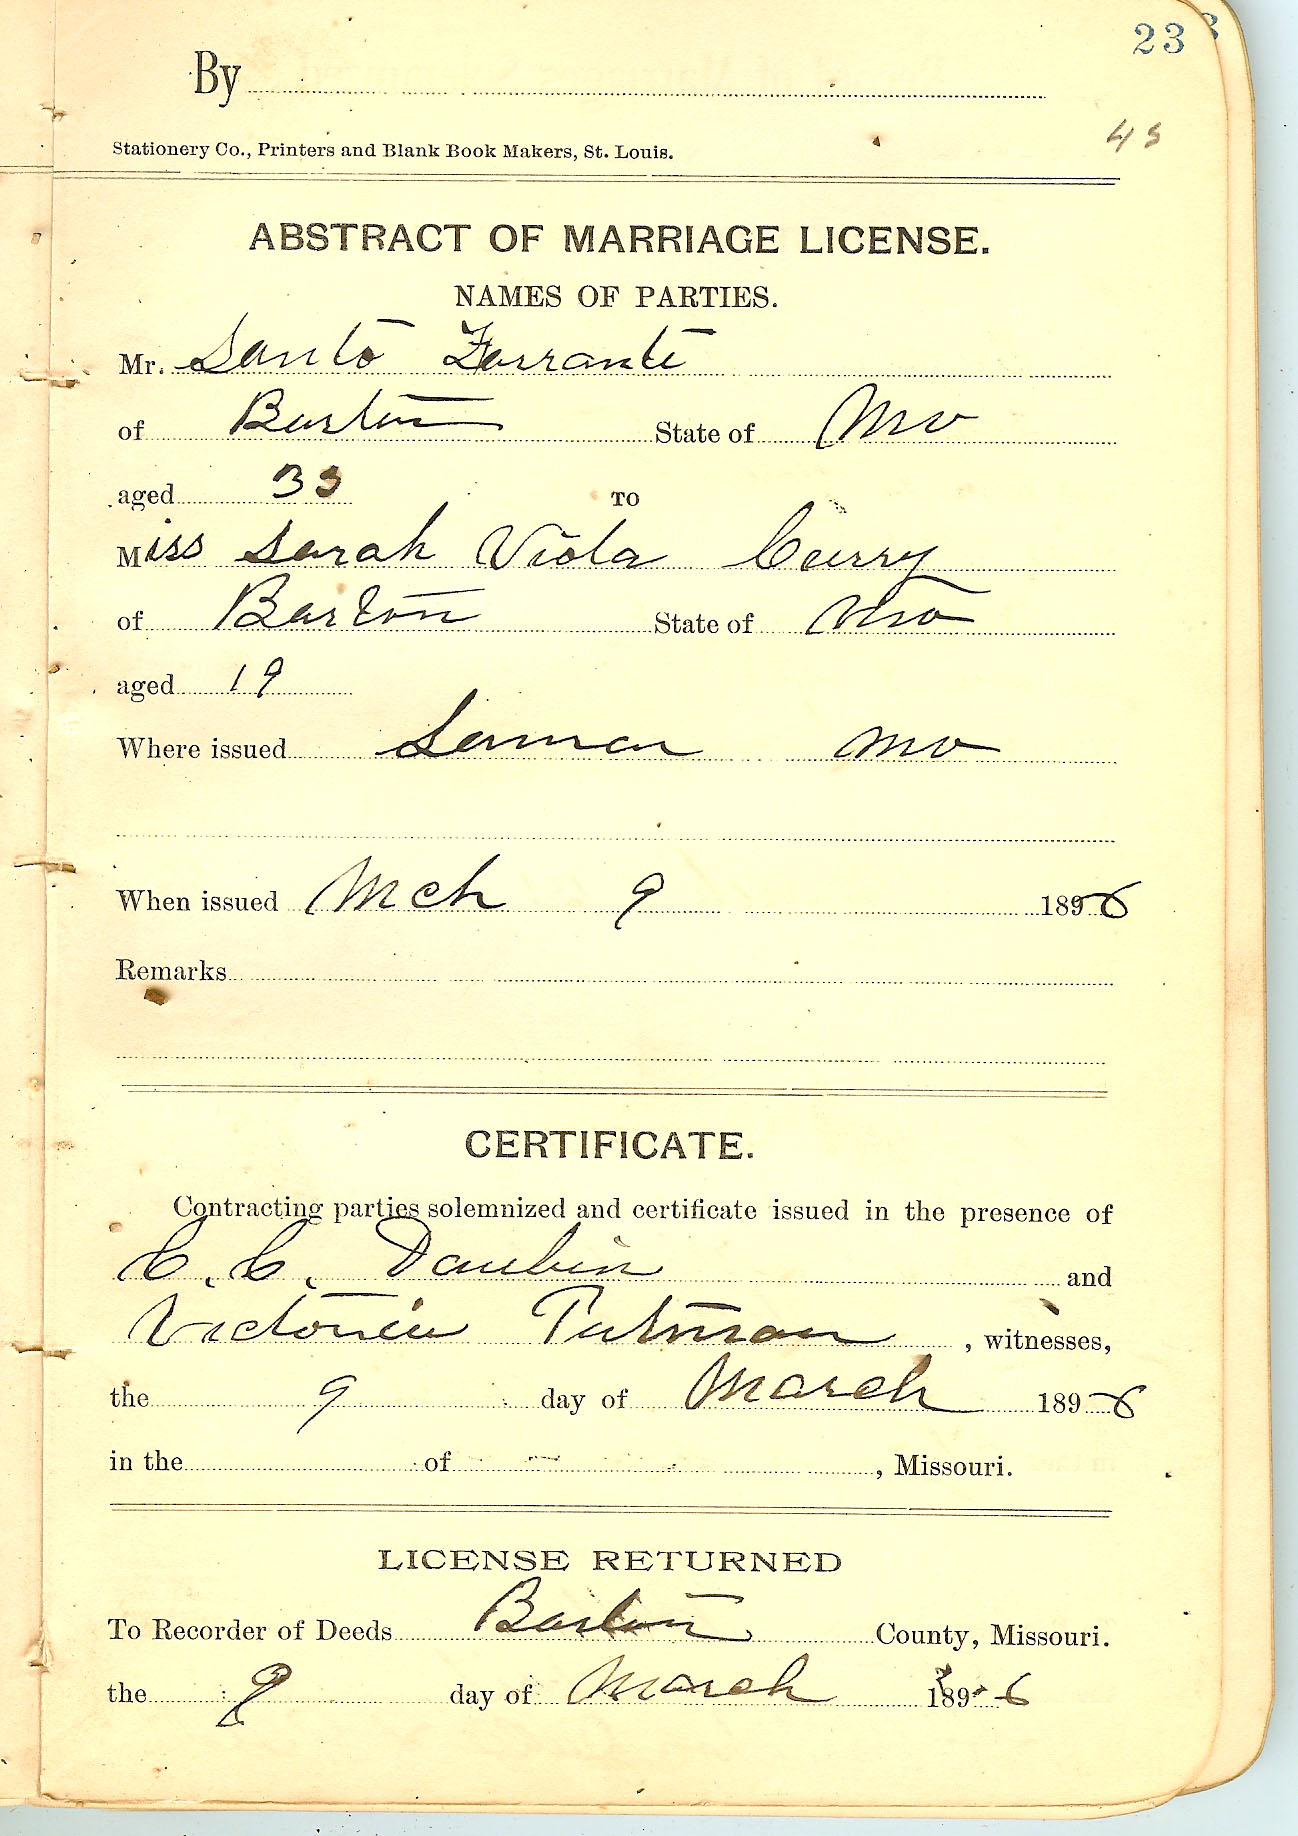 23
By
45
Stationery Co., Printers and Blank Book Makers, St. Louis.
ABSTRACT OF MARRIAGE LICENSE.
NAMES OF PARTIES.
Mr. Santo Farrante
of Barton State of Mo
aged 33 TO
Miss Sarah Viola Curry
of Barton State of Mo
aged 19
Where issued Lamar Mo
When issued Mch 9 1896
Remarks
CERTIFICATE.
Contracting parties solemnized and certificate issued in the presence of
C. C. Daubin and
Victoria Putman, witnesses,
the 9 day of March 1896
in the of , Missouri.
LICENSE RETURNED
To Recorder of Deeds Barton County, Missouri.
the 9 day of March 1896